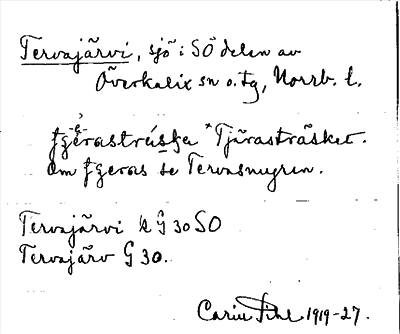 Tervajärvi, sjö i SÖ delen av
Överkalix sn o. tg, Norrb. l.
*Tjärasträsket.
Om fgeras se Tervasmyren.
Tervajärvi k G 30 SO
Tervajärv G 30.
Carin Pihl 1919-27.